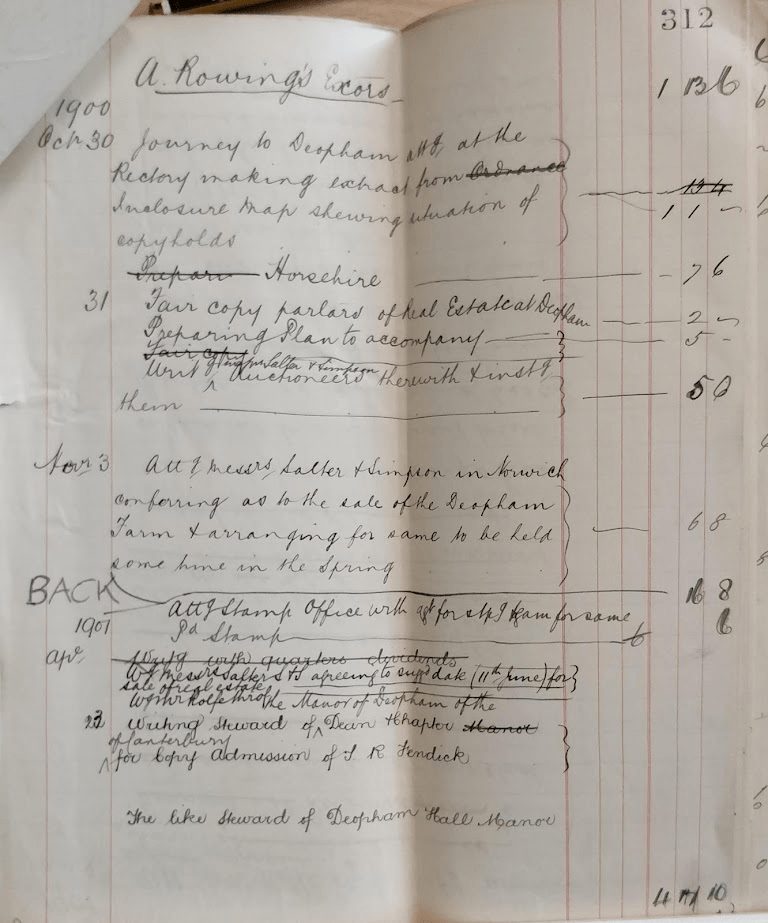 312
A. Rowing's Excors 1 13 6
1900
Octr 30 Journey to Deopham attg at the
Rectory making extract from Ordnance
Inclosure Map shewing situation of 1 1 -
copyholds
Prepari Horsehire 7 6
31 Fair copy parlars of Real Estate at Deopham 2 -
Preparing Plan to accompany 5 -
Fair copy
Writg Messrs Salter & Simpson
Auctioneers therewith & instg
them 5 0
Novr 3 Attg Messrs Salter & Simpson in Norwich
conferring as to the sale of the Deopham
Farm & arranging for same to be held 6 8
some time in the Spring
BACK 8
Attg Stamp Office with agt for stpg & again for same
1901 Pd Stamp 6 6
Apr Writg with quarters dividends
Wg Messrs Salter & S agreeing to sugd date (11th June) for
sale of real estate
the Manor of Deopham of the
23 Writing Steward of Dean & Chapter Manor
of Canterbury
for Copy Admission of T. R. Fendick
The like Steward of Deopham Hall Manor
10